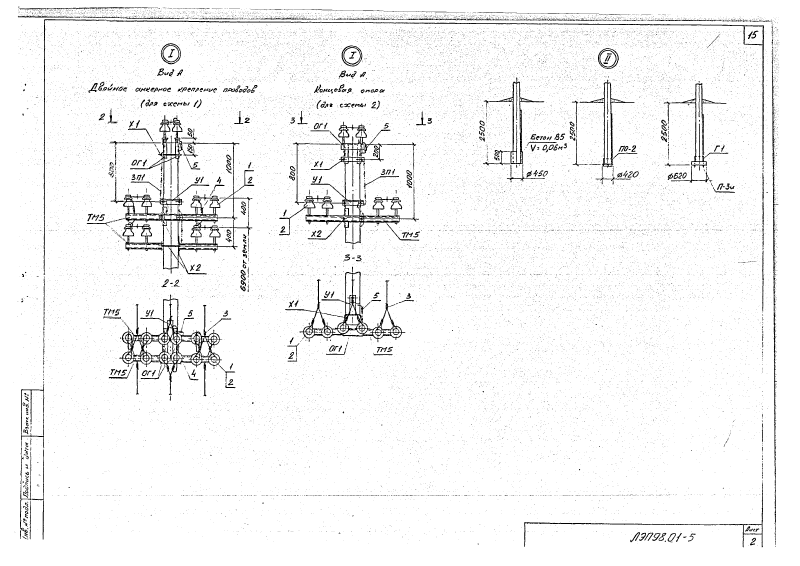 15
I
Вид А
Двойное анкерное крепление проводов
(для схемы 1)
2
2
Х1
ОГ1
ЗП1
5
У1
4
1
2
ТМ5
Х2
50
1000
400
400
6900 от земли
2-2
ТМ5
У1
5
3
ТМ5
ОГ1
4
1
2
I
Вид А
Концевая опора
(для схемы 2)
3
3
ОГ1
5
Х1
200
ЗП1
У1
800
1000
1
2
Х2
ТМ5
3-3
У1
Х1
5
3
1
2
ОГ1
ТМ5
II
2500
500
Бетон В5
V=0,06м³
ø450
2500
ПО-2
ø420
2500
Г1
ø620
П-3и
Инв. № подл.
Подпись и дата
Взам. инв. №
ЛЭП98.01-5
Лист
2